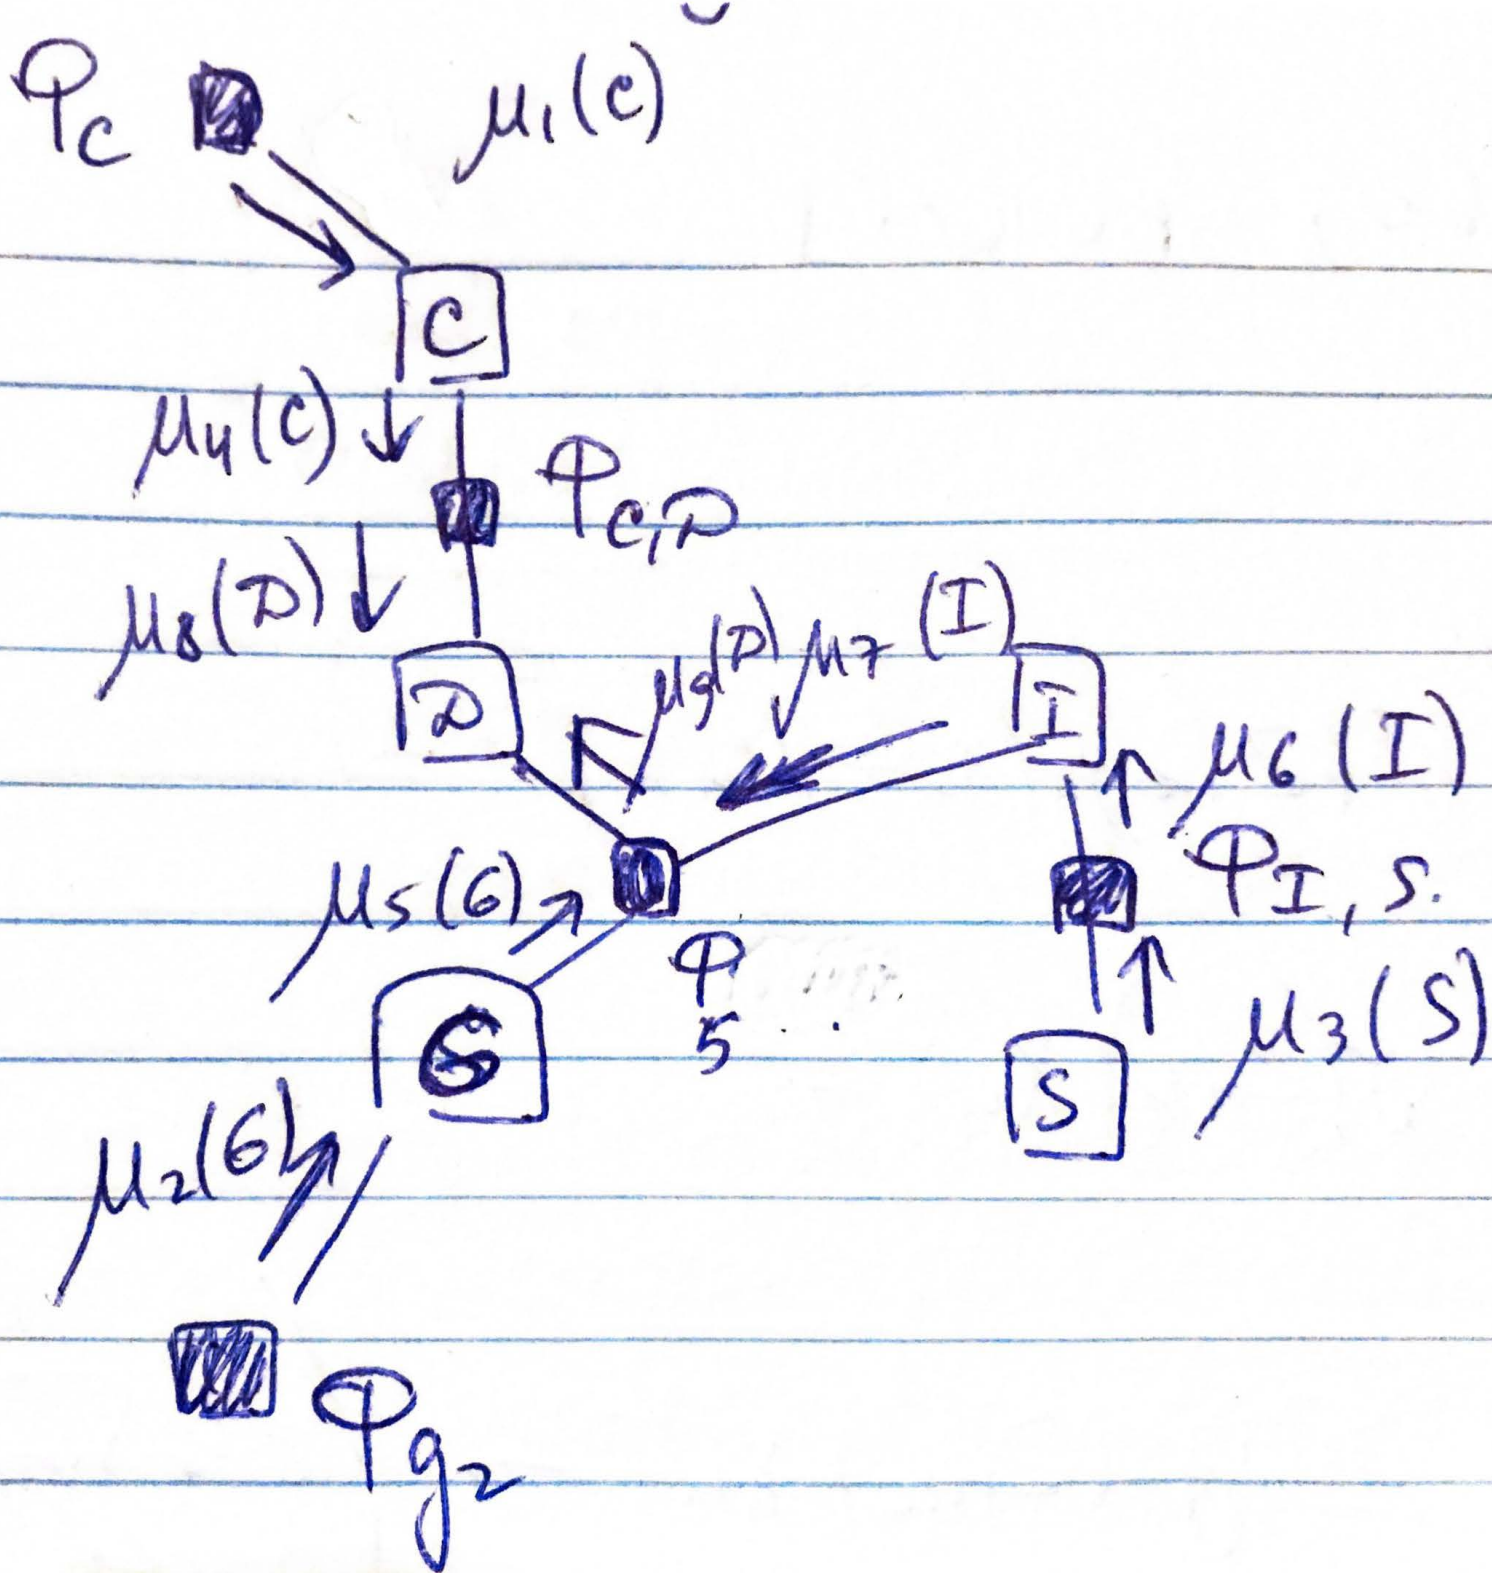 φ_C μ₁(C)
C
μ₄(C) φ_C,D
μ₈(D)
D μ₉(D) μ₇(I) I
μ₆(I)
φ_I,S.
μ₅(G)
φ_5...
G
μ₃(S)
S
μ₂(G)
φ_g₂